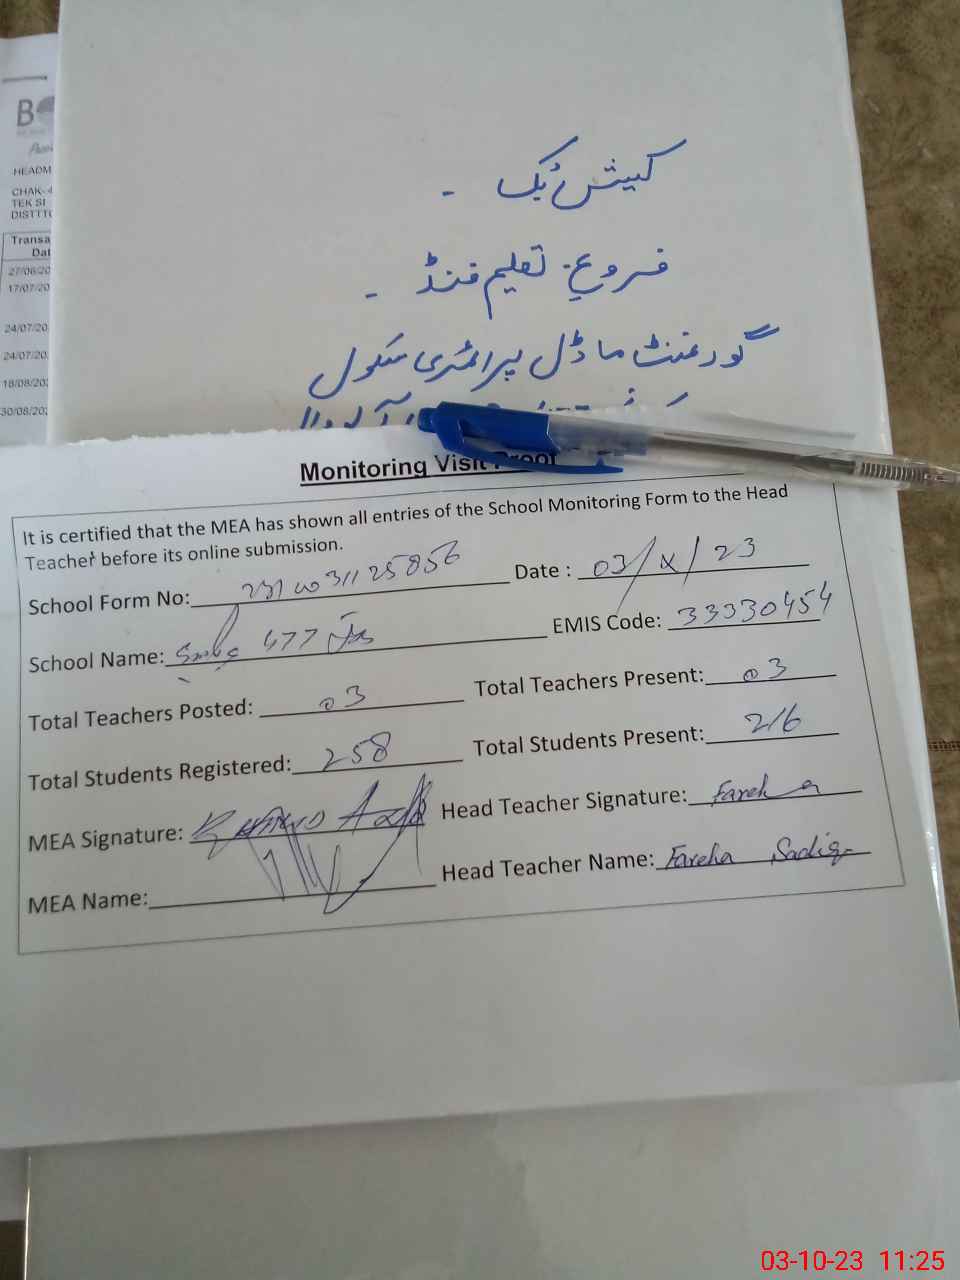 HEADM
CHAK-4
TEK SI
DISTTTO
Transa
Dat
27/06/20
17/07/20
24/07/20
24/07/20
18/08/20
30/08/20
کیش بک -
فروغِ تعلیم فنڈ -
گورنمنٹ ماڈل پرائمری سکول
Monitoring Visit Proof
It is certified that the MEA has shown all entries of the School Monitoring Form to the Head
Teacher before its online submission.
School Form No: Date : 03/X/23
School Name: 477 JB EMIS Code: 33330454
Total Teachers Posted: 03 Total Teachers Present: 03
Total Students Registered: 258 Total Students Present: 216
MEA Signature: Head Teacher Signature: Fareha
MEA Name: Head Teacher Name: Fareha Sadiq
03-10-23 11:25